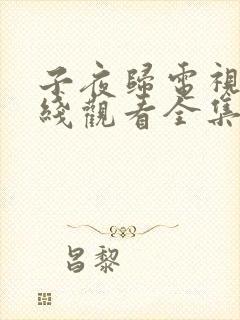 子夜歸電視
綫觀看全集
昌黎